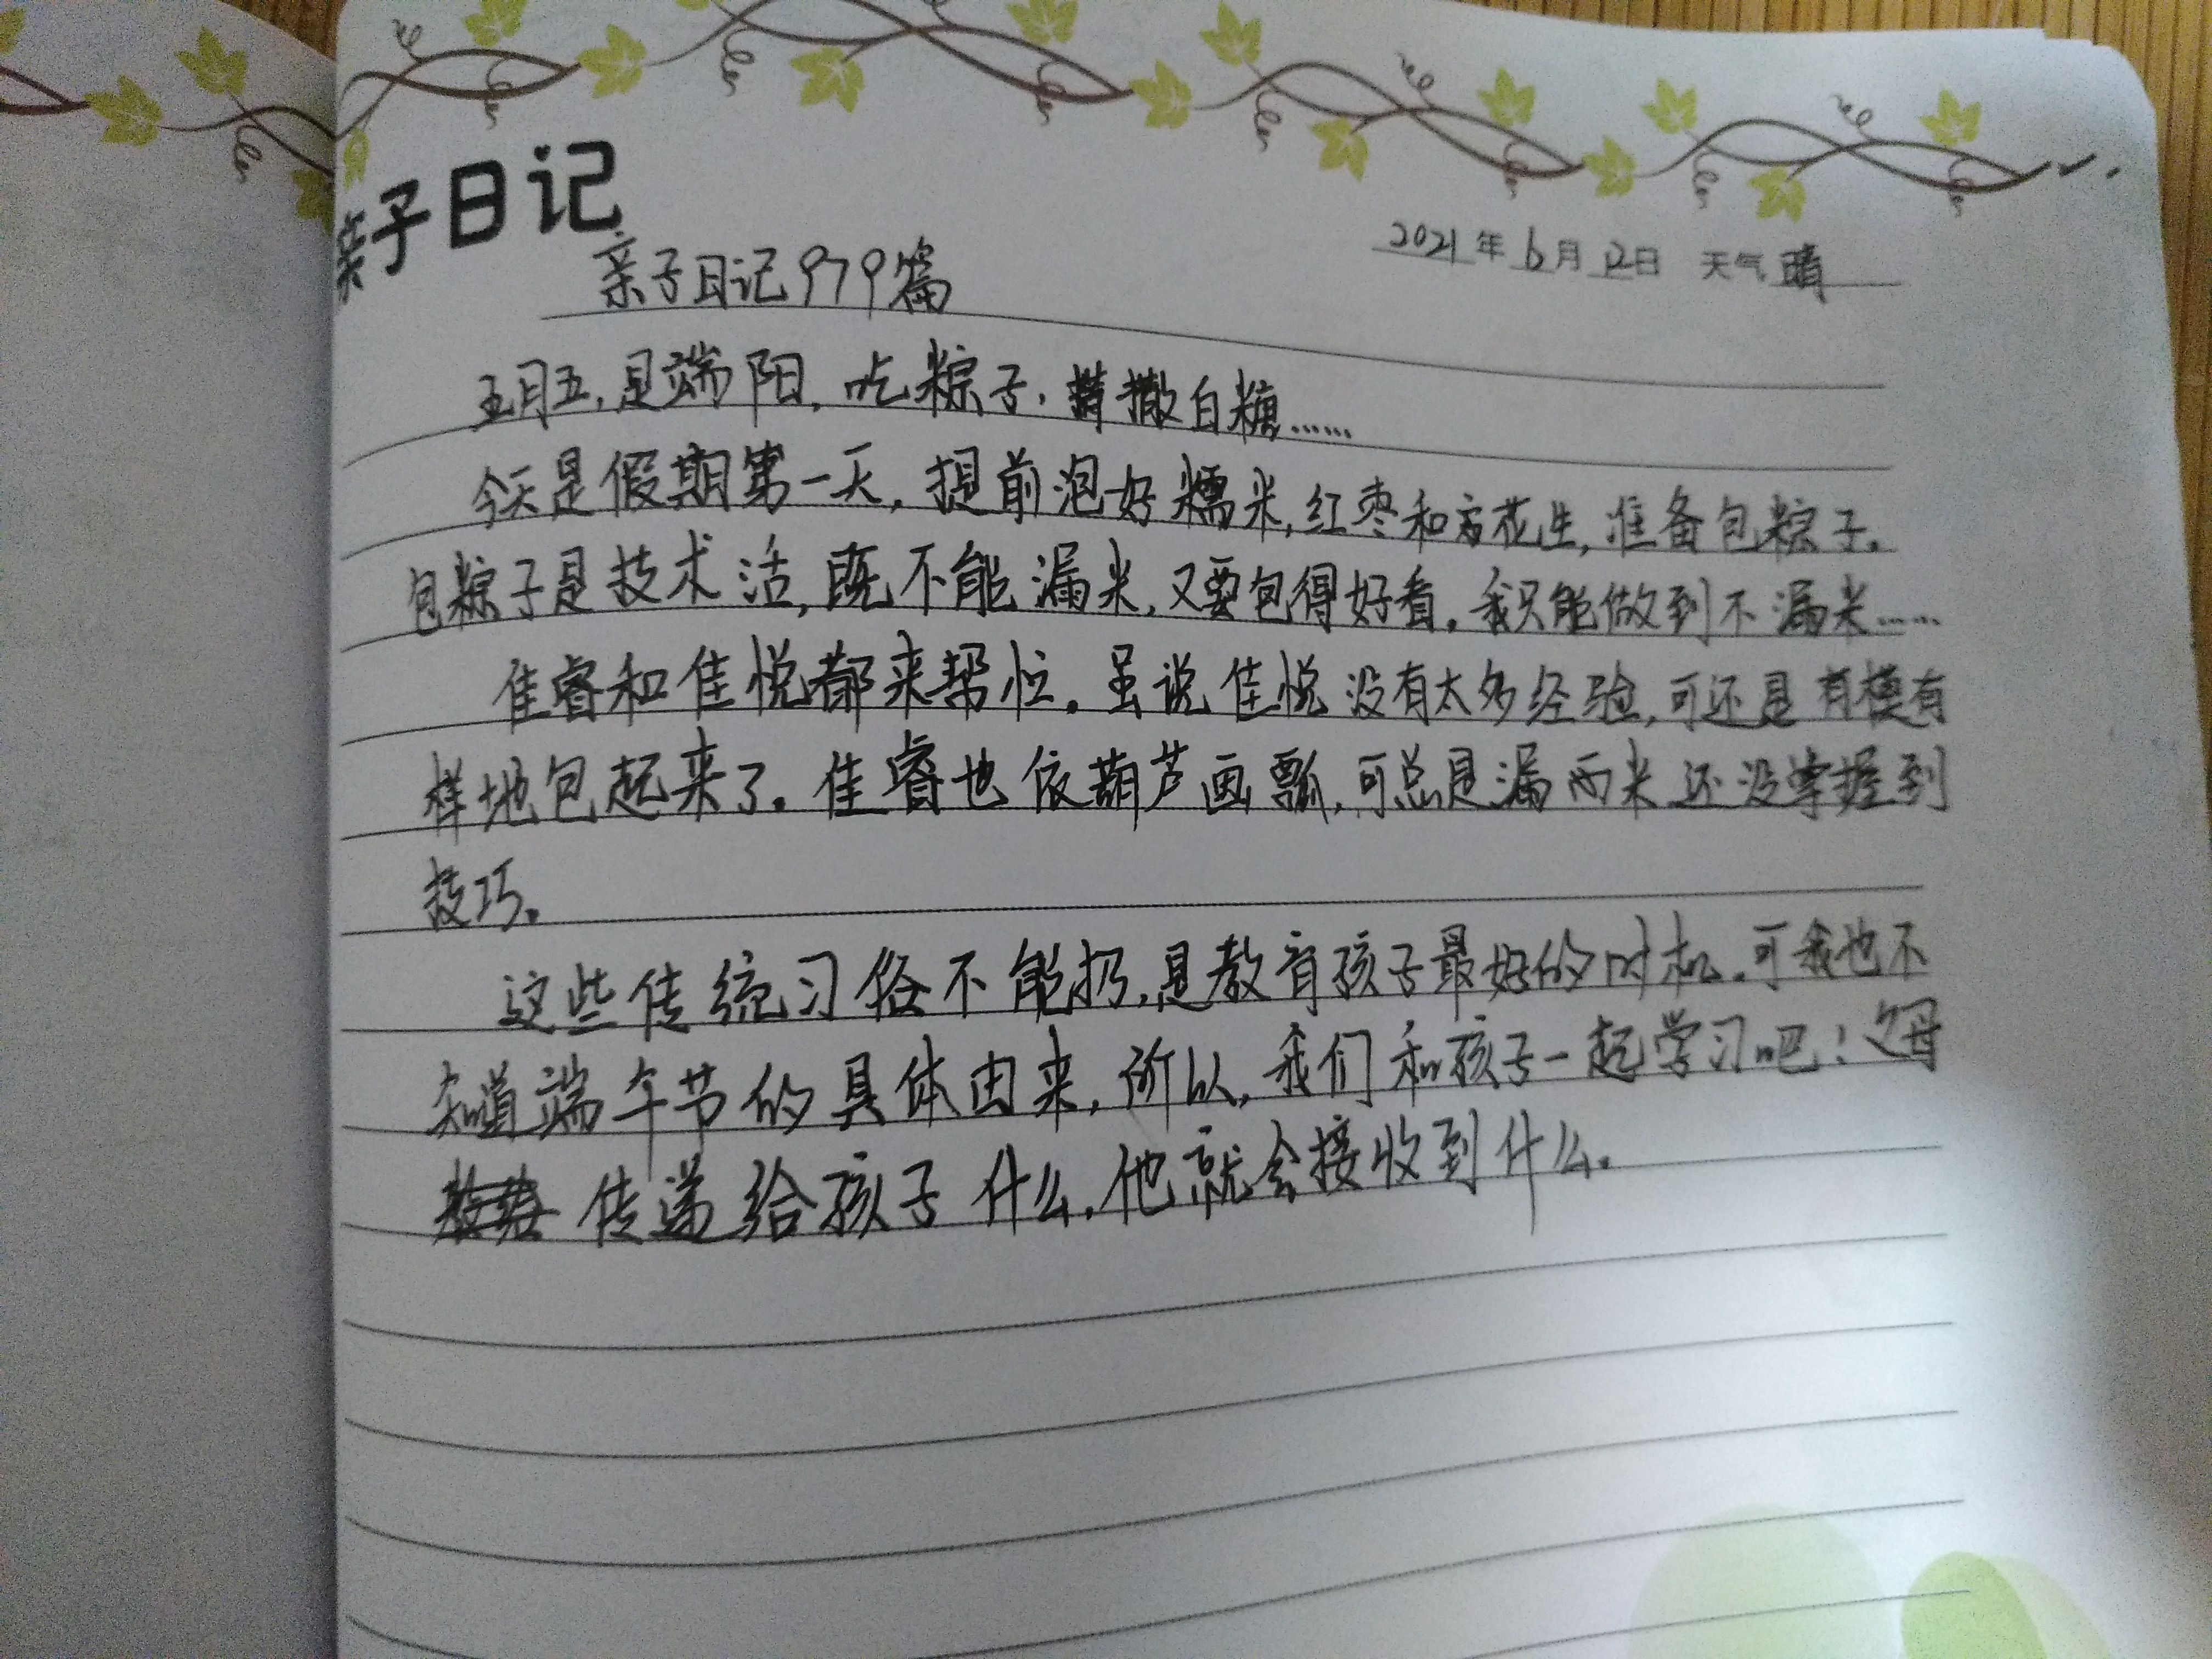 亲子日记
2021年6月12日 天气 晴
亲子日记979篇
五月五,是端阳,吃粽子,撒白糖……
今天是假期第一天,提前泡好糯米,红枣和花生,准备包粽子。
包粽子是技术活,既不能漏米,又要包得好看。我只能做到不漏米……
佳睿和佳悦都来帮忙。虽说佳悦没有太多经验,可还是有模有
样地包起来了。佳睿也依葫芦画瓢,可总是漏两米 还没掌握到
技巧。
这些传统习俗不能扔,是教育孩子最好的时机。可我也不
知道端午节的具体由来,所以,我们和孩子一起学习吧!父母
传递给孩子什么,他就会接收到什么。